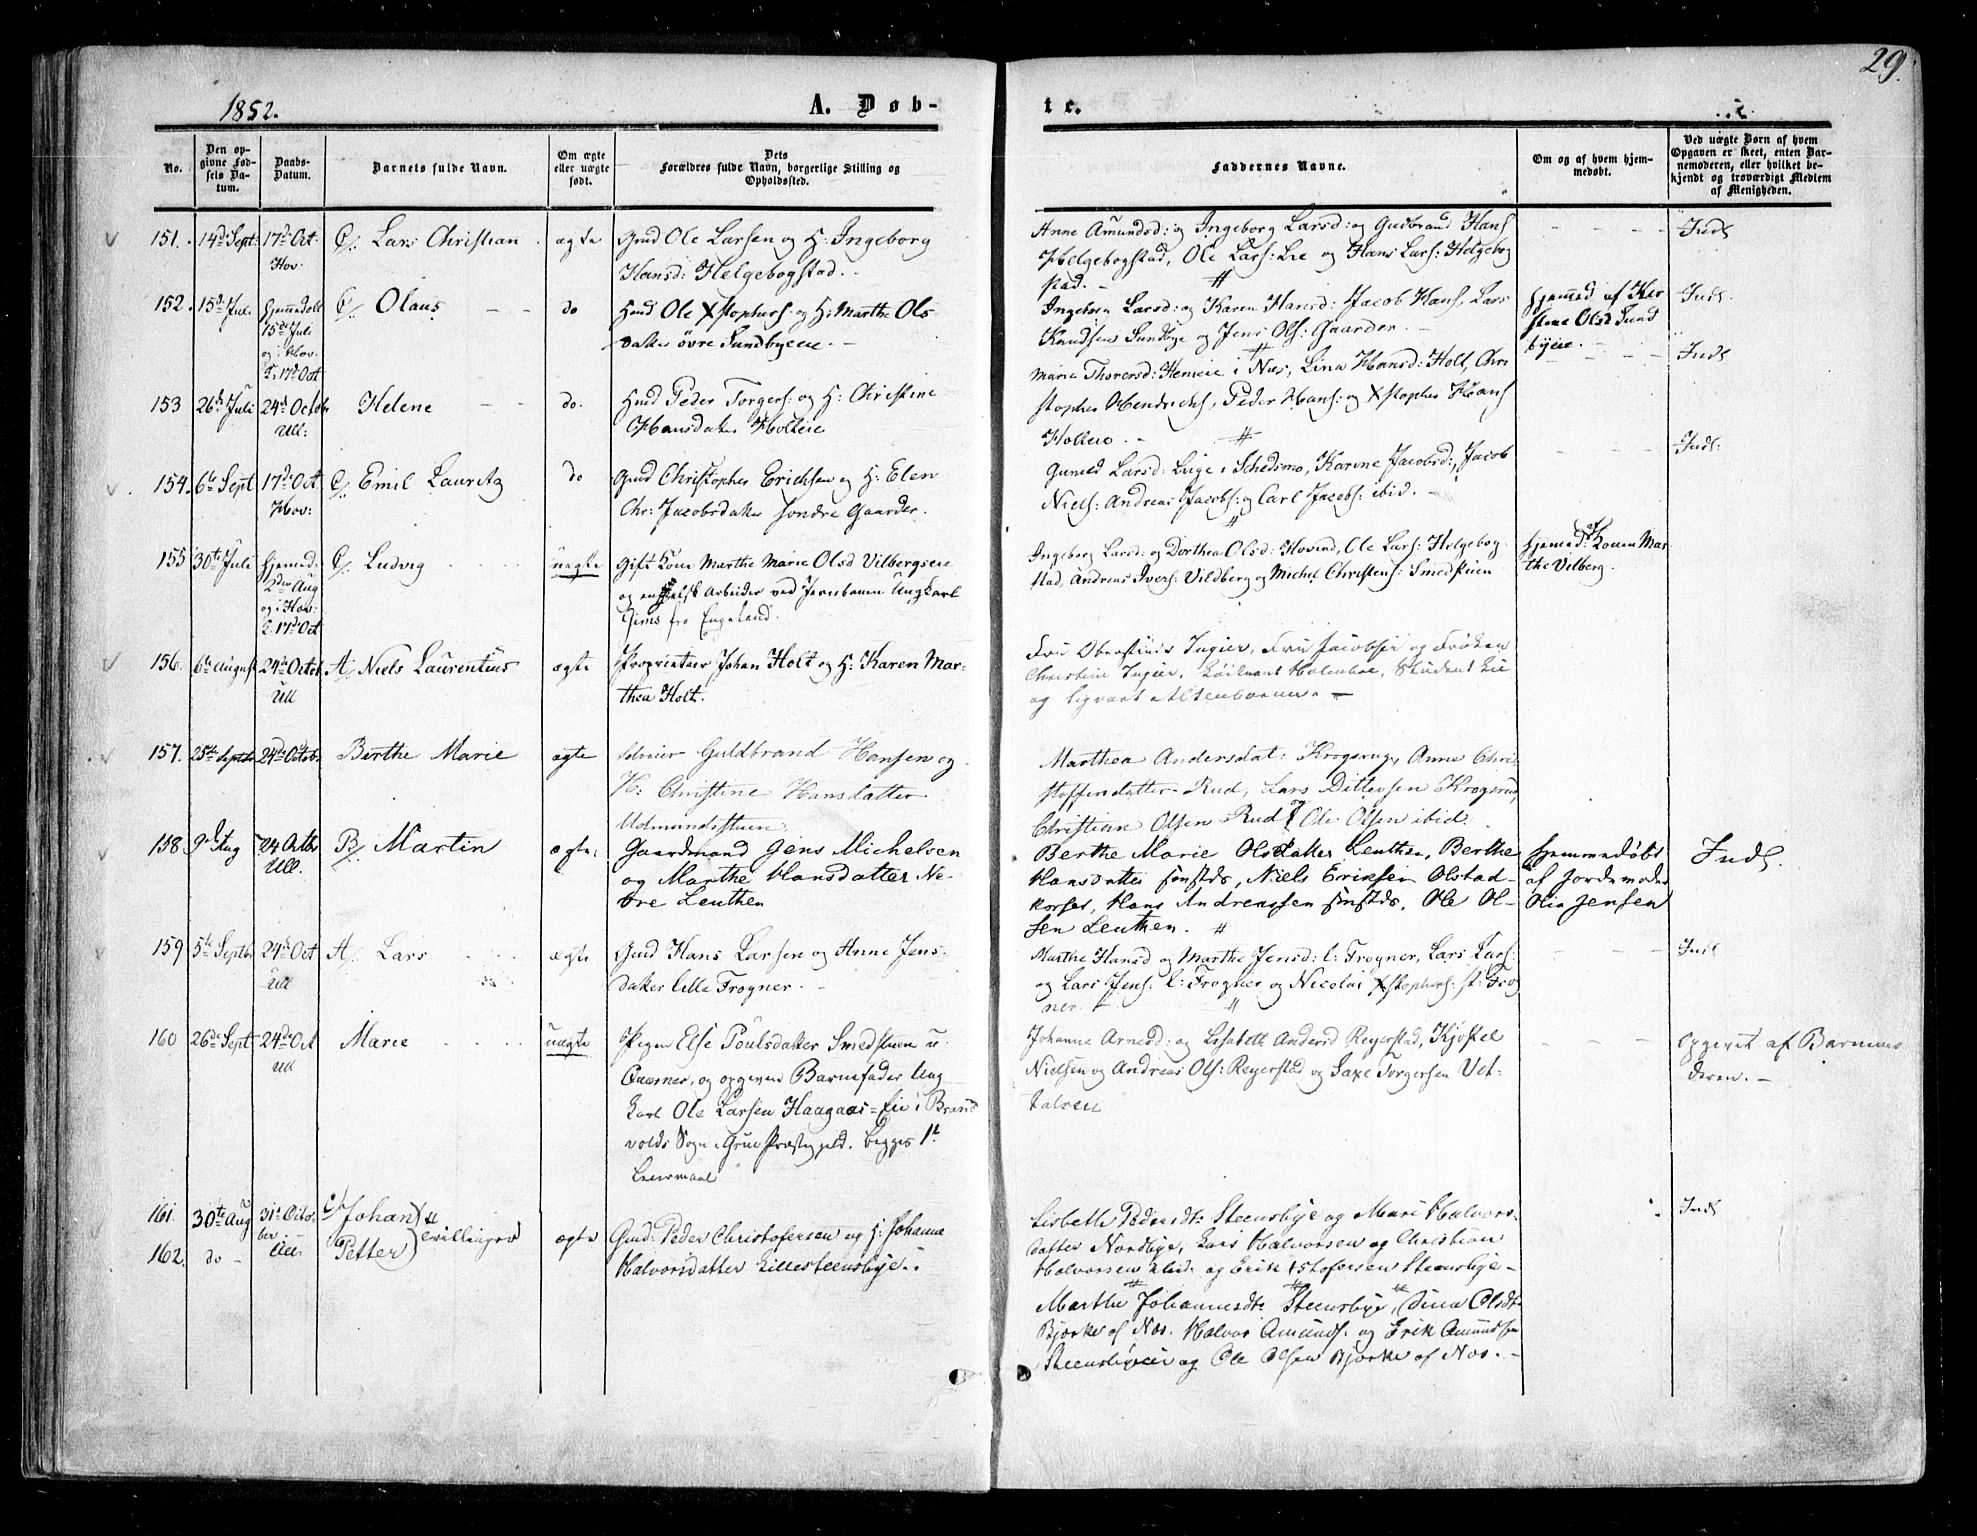 29.
1852.
A. Døb-
te.
No.
Den op-
givne Fød-
sels Da-
tum.
Daabs-
Datum.
Barnets fulde Navn.
Om ægte
eller uægte
født.
Dets
Forældres fulde Navn, borgerlige Stilling og
Opholdssted.
Faddernes Navne.
Om og af hvem hjem-
medøbt.
Ved uægte Børn af hvem
Opgaven er skeet, enten Bar-
nemoderen, eller hvilket be-
kjendt og troværdigt Medlem
af Menigheden.
151. 14d Sept: 17d Oct: Lars Christian ægte Gmd Ole Larsen og H: Ingeborg
Hov. Hansd: Helgebogstad.
Anne Amundsd: og Ingeborg Larsd: og Gudbrand Hans
Helgebogstad, Ole Lars: Lie og Hans Lars: Helgebog
stad. Inds
152. 15d Juli Hjemmedøbt Olaus do Hmd Ole Xstophers: og H: Marthe Ols-
15d Juli datter øvre Sundbyeie.
og i Hov.
K. 17d Oct
Ingeborg Larsd: og Karen Hansd: Jacob Hans, Lars
Knudsen Sundbye og Jens Ols: Gaarder.
Hjemmed af Kar
stene Olsd Sund
byeie. Inds
153 26d Juli 24d Octob Helene do. Hmd Peder Torgers: og H: Christine
Ull: Hansdatter Holteie
Marie Thorersd: Hemeie i Næs, Lina Hansd: Holt, Chri
stopher Hendrichs, Peder Hans: og Xstopher Hans
Holteie. Inds
154. 6te Sept 17d Oct Emil Lauritz do Gmd Christopher Erichsen og H: Elen
Hov: Chr: Jacobsdatter søndre Gaarder.
Gunild Larsd: Lüge i Schedsmo, Karine Jacobsd:, Jacob
Niels: Andreas Jacobs: og Carl Jacobs: ibid. Inds.
155 30te Juli Hjemmed: Ludvig uægte Gift Kone Marthe Marie Olsd Vilbergseie
2den Aug og engelsk Arbeider ved Jernbanen Ungkarl
og i Hov: Gims fra Engeland.
K. 17d Oct
Ingeborg Larsd: og Dorthea Olsd: Hovind, Ole Lars: Helgebog-
stad, Andreas Ivers: Vildberg og Michel Christens: Smedstuen
Hjemmed: af Konen Mar
the Vilberg.
156. 6te August 24d Octob Niels Laurentius ægte Proprietair Johan Holt og H: Karen Mar-
Ull thea Holt.
Fru Oberstinde Ingier, Fru Jacobsen og Frøken
Christine Ingier, Løitnant Holenboe, Student Lie
og Sigvart Altenborn.
157. 25te Septbr 24d Octob Berthe Marie ægte Selveier Guldbrand Hansen og
H: Christine Hansdatter
Udmundstuen.
Marthea Andersdat: Krogsrug, Anne Chri-
stoffersdatter Rud, Lars Ditlevsen Krogsrud,
Christian Olsen Rud og Ole Olsen ibid.
158. 9de Aug 24 Octbr Martin ægte. Gaardmand Jens Michelsen
Ull. og Marthe Hansdatter Ne-
dre Leuthen
Berthe Marie Olsdatter Leuthen, Berthe
Hansdatter sinstds, Niels Eriksen Olstad-
korset, Hans Andreassen sinstds, Ole Ol-
sen Leuthen.
Hjemmedøbt
af Jordemoder
Olia Jensen Inds.
159. 5te Septbr 24d Oct Lars ægte Gmd Hans Larsen og Anne Jens-
Ull datter lille Frogner.
Marthe Hansd og Marthe Jensd: l: Frogner, Lars Lars:
og Lars Jens: l: Frogner og Nicolai Xstophers: st: Frog
ner. Inds
160 26de Sept 24de Oct Marie uægte Pigen Else Poulsdatter Smedstuen u:
Ull Quærner, og opgiven Barnefader Ung
karl Ole Larsen Haagaas-Eie i Brand
volds Sogn i Grue Præstegjeld. Begges 1t
Leiermaal
Johanne Arnedd: og Lisabeth Andersd Reyerstad, Kjøstel
Nielsen og Andreas Ols: Reyerstad og Saxe Torgersen Vet-
talseie
Opgivet af Barnemo
deren.
161. 30te Aug 31te Octo- Johan
ber Tvillinger
162. do Ull: Petter ægte Gmd: Peder Christofersen og H: Johanne
Halvorsdatter Lillesteensbye.
Lisbeth Pedersdt: Steensbye og Mari Halvors-
datter Nordbye, Lars Halvorsen og Christian
Halvorsen ibid: og Erik Xstofersen Steensbye
Marthe Johannesdt: Steensbye, Sina Olsdt:
Bjørke af Næs. Halvor Amunds. og Erik Amundsen
Steensbyeeie og Ole Olsen Bjørke af Næs. Inds